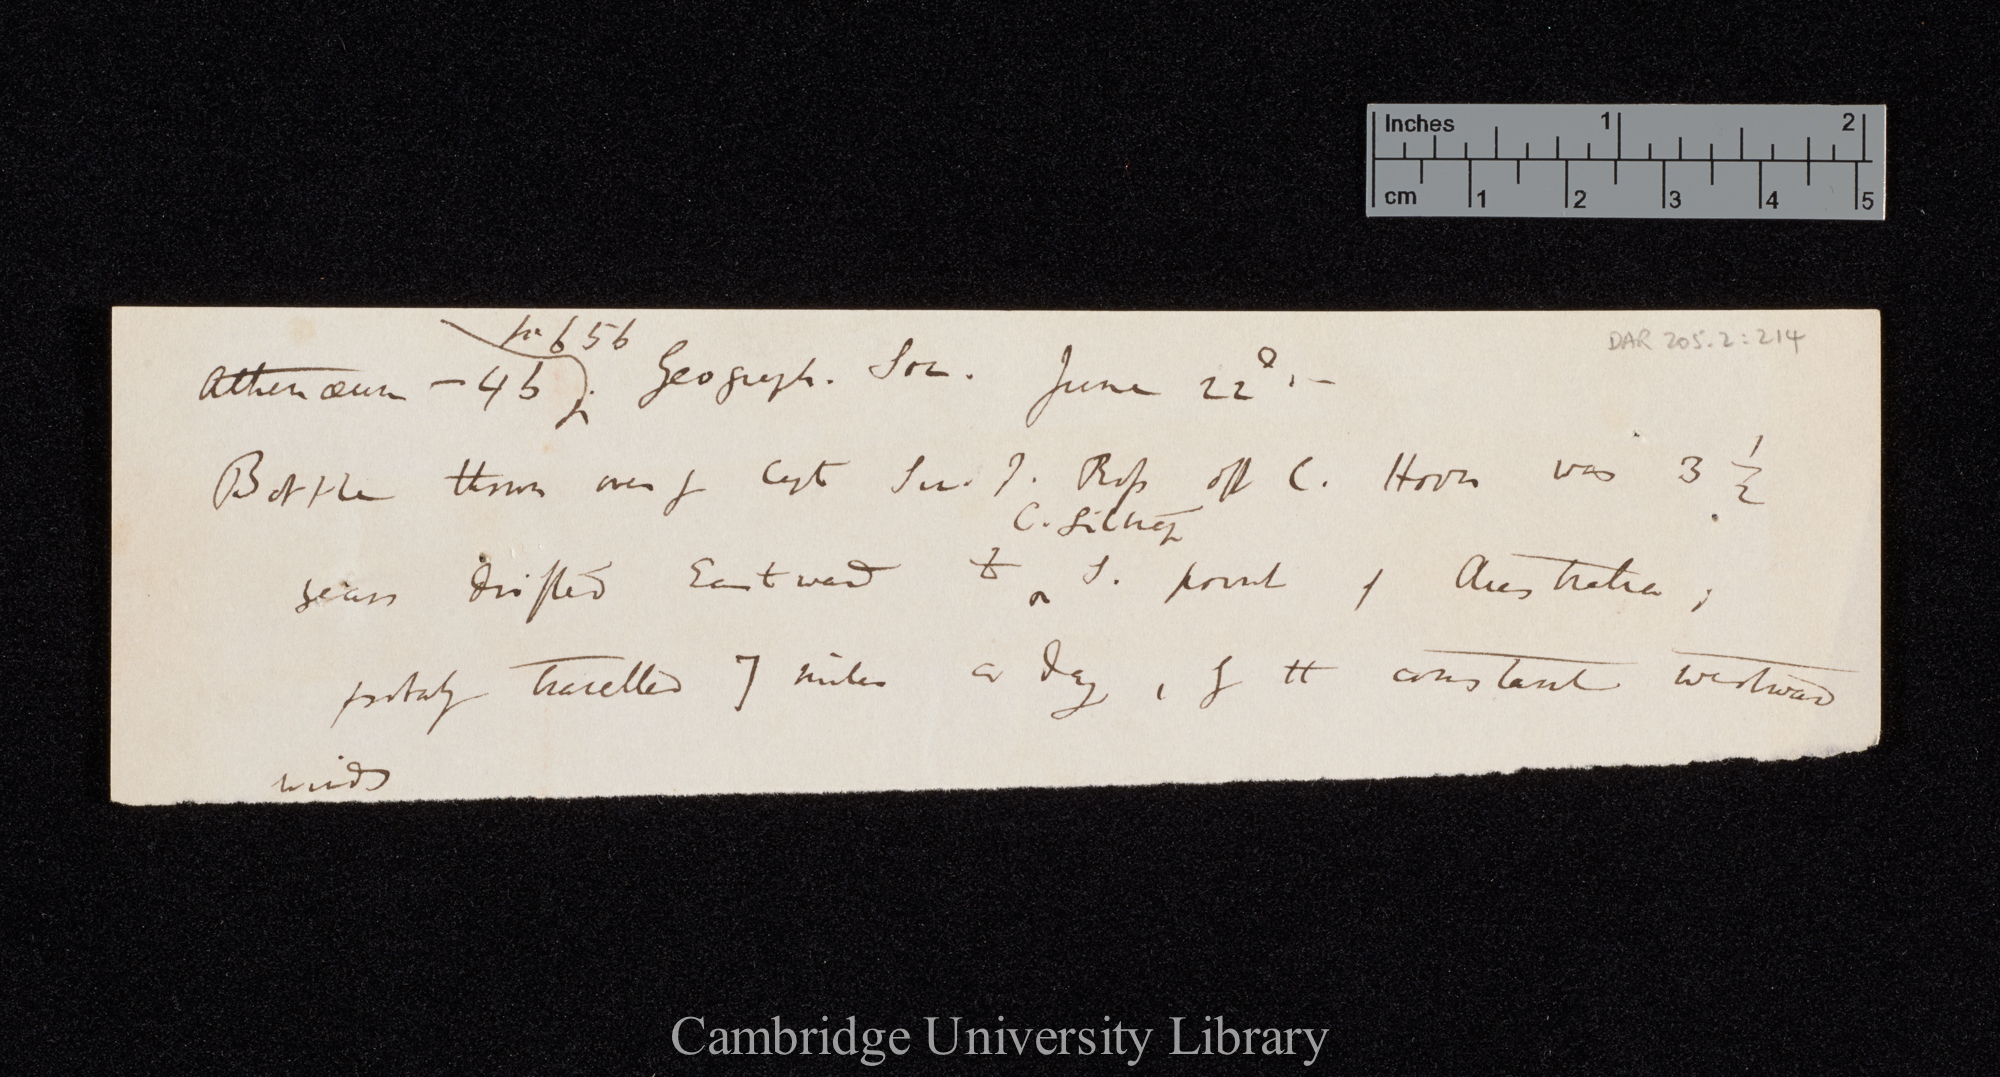 Inches 1 2
cm 1 2 3 4 5
DAR 205.2:214
p. 656
Athenæum - 46 Geograph. Soc. June 22d. —
Bottle thrown over by Capt Sir. J. Ross off C. Horn was 3 1/2
C.
years drifted Eastward to S. point of Australia;
probably travelled 7 miles a day, by the constant westward
winds
Cambridge University Library